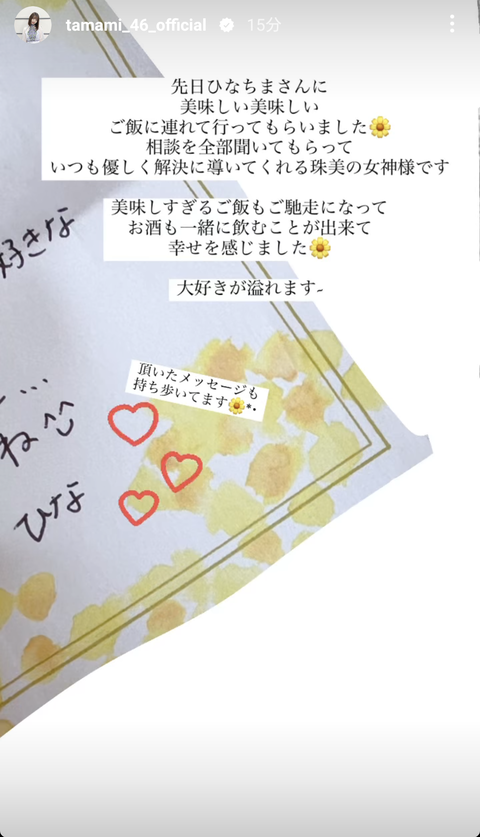 tamami_46_official 15分
先日ひなちまさんに
美味しい美味しい
ご飯に連れて行ってもらいました🌼
相談を全部聞いてもらって
いつも優しく解決に導いてくれる珠美の女神様です
美味しすぎるご飯もご馳走になって
お酒も一緒に飲むことが出来て
幸せを感じました🌼
大好きが溢れます˶
好きな
頂いたメッセージも
持ち歩いてます🌼*･
…
ね
ひな